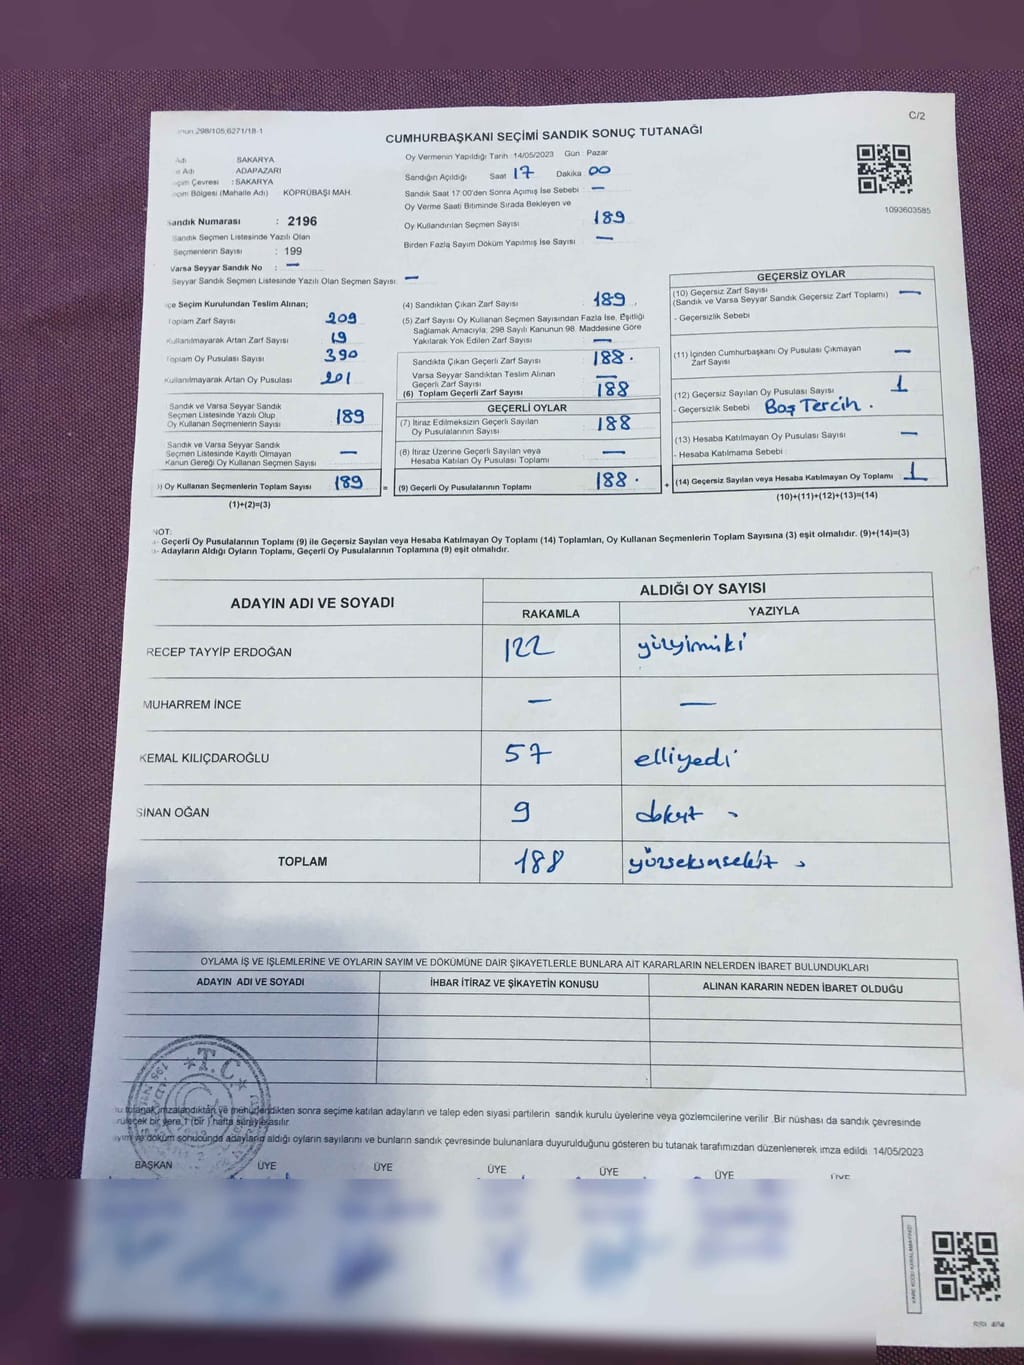 C/2
298/105,6271/18-1
CUMHURBAŞKANI SEÇİMİ SANDIK SONUÇ TUTANAĞI
Adı SAKARYA
Adı ADAPAZARI
Çevresi : SAKARYA
Bölgesi (Mahalle Adı) KÖPRÜBAŞI MAH.
Sandık Numarası : 2196
Sandık Seçmen Listesinde Yazılı Olan
Seçmenlerin Sayısı : 199
Varsa Seyyar Sandık No : —
Seyyar Sandık Seçmen Listesinde Yazılı Olan Seçmen Sayısı: —
Oy Vermenin Yapıldığı Tarih :14/05/2023 Gün : Pazar
Sandığın Açıldığı Saat 17 Dakika 00
Sandık Saat 17:00'den Sonra Açılmış İse Sebebi : —
Oy Verme Saati Bitiminde Sırada Bekleyen ve
Oy Kullandırılan Seçmen Sayısı : 189
Birden Fazla Sayım Döküm Yapılmış İse Sayısı : —
1093603585
Seçim Kurulundan Teslim Alınan;
Toplam Zarf Sayısı 209
Kullanılmayarak Artan Zarf Sayısı 19
Toplam Oy Pusulası Sayısı 390
Kullanılmayarak Artan Oy Pusulası 201
Sandık ve Varsa Seyyar Sandık
Seçmen Listesinde Yazılı Olup
Oy Kullanan Seçmenlerin Sayısı 189
Sandık ve Varsa Seyyar Sandık
Seçmen Listesinde Kayıtlı Olmayan
Kanun Gereği Oy Kullanan Seçmen Sayısı —
) Oy Kullanan Seçmenlerin Toplam Sayısı 189
(1)+(2)=(3)
(4) Sandıktan Çıkan Zarf Sayısı 189
(5) Zarf Sayısı Oy Kullanan Seçmen Sayısından Fazla İse, Eşitliği
Sağlamak Amacıyla; 298 Sayılı Kanunun 98. Maddesine Göre
Yakılarak Yok Edilen Zarf Sayısı —
Sandıkta Çıkan Geçerli Zarf Sayısı 188.
Varsa Seyyar Sandıktan Teslim Alınan
Geçerli Zarf Sayısı —
(6) Toplam Geçerli Zarf Sayısı 188
GEÇERLİ OYLAR
(7) İtiraz Edilmeksizin Geçerli Sayılan
Oy Pusulalarının Sayısı 188
(8) İtiraz Üzerine Geçerli Sayılan veya
Hesaba Katılan Oy Pusulası Toplamı —
= (9) Geçerli Oy Pusulalarının Toplamı 188.
GEÇERSİZ OYLAR
(10) Geçersiz Zarf Sayısı
(Sandık ve Varsa Seyyar Sandık Geçersiz Zarf Toplamı) —
- Geçersizlik Sebebi
(11) İçinden Cumhurbaşkanı Oy Pusulası Çıkmayan
Zarf Sayısı —
(12) Geçersiz Sayılan Oy Pusulası Sayısı 1
- Geçersizlik Sebebi Boş Tercih.
(13) Hesaba Katılmayan Oy Pusulası Sayısı —
- Hesaba Katılmama Sebebi
+ (14) Geçersiz Sayılan veya Hesaba Katılmayan Oy Toplamı 1
(10)+(11)+(12)+(13)=(14)
NOT:
- Geçerli Oy Pusulalarının Toplamı (9) ile Geçersiz Sayılan veya Hesaba Katılmayan Oy Toplamı (14) Toplamları, Oy Kullanan Seçmenlerin Toplam Sayısına (3) eşit olmalıdır. (9)+(14)=(3)
- Adayların Aldığı Oyların Toplamı, Geçerli Oy Pusulalarının Toplamına (9) eşit olmalıdır.
ADAYIN ADI VE SOYADI ALDIĞI OY SAYISI
RAKAMLA YAZIYLA
RECEP TAYYİP ERDOĞAN 122 yüzyirmiiki
MUHARREM İNCE — —
KEMAL KILIÇDAROĞLU 57 elliyedi
SİNAN OĞAN 9 dokuz
TOPLAM 188 yüzseksensekiz
OYLAMA İŞ VE İŞLEMLERİNE VE OYLARIN SAYIM VE DÖKÜMÜNE DAİR ŞİKAYETLERLE BUNLARA AİT KARARLARIN NELERDEN İBARET BULUNDUKLARI
ADAYIN ADI VE SOYADI İHBAR İTİRAZ VE ŞİKAYETİN KONUSU ALINAN KARARIN NEDEN İBARET OLDUĞU
T.C.
tutanak imzalandıktan ve mühürlendikten sonra seçime katılan adayların ve talep eden siyasi partilerin sandık kurulu üyelerine veya gözlemcilerine verilir. Bir nüshası da sandık çevresinde
bir yere 1 (bir) hafta süreyle asılır.
ve döküm sonucunda adayların aldığı oyların sayılarını ve bunların sandık çevresinde bulunanlara duyurulduğunu gösteren bu tutanak tarafımızdan düzenlenerek imza edildi. 14/05/2023
BAŞKAN ÜYE ÜYE ÜYE ÜYE ÜYE ÜYE